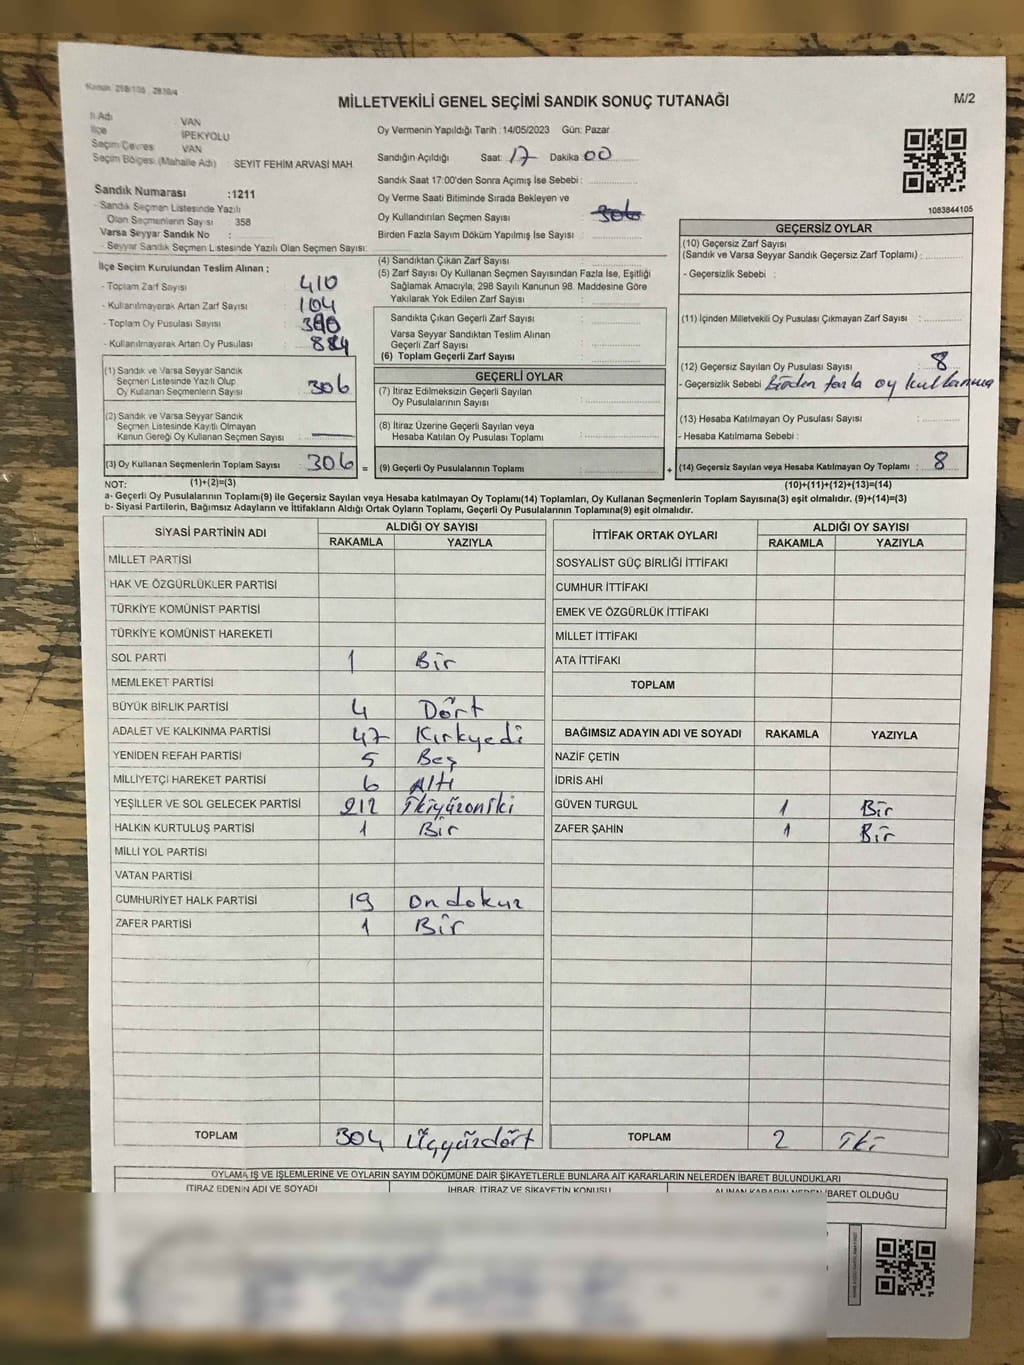 Kanun 298/105 2839/4
MİLLETVEKİLİ GENEL SEÇİMİ SANDIK SONUÇ TUTANAĞI
M/2
İl Adı : VAN
İlçe : İPEKYOLU
Seçim Çevres : VAN
Seçim Bölgesi (Mahalle Adı) : SEYİT FEHİM ARVASİ MAH.
Sandık Numarası :1211
- Sandık Seçmen Listesinde Yazılı
Olan Seçmenlerin Sayısı : 358
Varsa Seyyar Sandık No :
- Seyyar Sandık Seçmen Listesinde Yazılı Olan Seçmen Sayısı:
Oy Vermenin Yapıldığı Tarih : 14/05/2023 Gün: Pazar
Sandığın Açıldığı Saat: 17 Dakika 00
Sandık Saat 17:00'den Sonra Açımış İse Sebebi :
Oy Verme Saati Bitiminde Sırada Bekleyen ve
Oy Kullandırılan Seçmen Sayısı 306
Birden Fazla Sayım Döküm Yapılmış İse Sayısı :
1083844105
İlçe Seçim Kurulundan Teslim Alınan ;
- Toplam Zarf Sayısı : 410
- Kullanılmayarak Artan Zarf Sayısı : 104
- Toplam Oy Pusulası Sayısı :
- Kullanılmayarak Artan Oy Pusulası :
(1) Sandık ve Varsa Seyyar Sandık
Seçmen Listesinde Yazılı Olup
Oy Kullanan Seçmenlerin Sayısı : 306
(2) Sandık ve Varsa Seyyar Sandık
Seçmen Listesinde Kayıtlı Olmayan
Kanun Gereği Oy Kullanan Seçmen Sayısı : —
(3) Oy Kullanan Seçmenlerin Toplam Sayısı : 306 =
(4) Sandıktan Çıkan Zarf Sayısı :
(5) Zarf Sayısı Oy Kullanan Seçmen Sayısından Fazla İse, Eşitliği
Sağlamak Amacıyla, 298 Sayılı Kanunun 98. Maddesine Göre
Yakılarak Yok Edilen Zarf Sayısı :
Sandıkta Çıkan Geçerli Zarf Sayısı :
Varsa Seyyar Sandıktan Teslim Alınan
Geçerli Zarf Sayısı :
(6) Toplam Geçerli Zarf Sayısı :
GEÇERLİ OYLAR
(7) İtiraz Edilmeksizin Geçerli Sayılan
Oy Pusulalarının Sayısı :
(8) İtiraz Üzerine Geçerli Sayılan veya
Hesaba Katılan Oy Pusulası Toplamı :
(9) Geçerli Oy Pusulalarının Toplamı : +
GEÇERSİZ OYLAR
(10) Geçersiz Zarf Sayısı
(Sandık ve Varsa Seyyar Sandık Geçersiz Zarf Toplamı) :
- Geçersizlik Sebebi :
(11) İçinden Milletvekili Oy Pusulası Çıkmayan Zarf Sayısı :
(12) Geçersiz Sayılan Oy Pusulası Sayısı : 8
- Geçersizlik Sebebi : Birden fazla oy kullanma
(13) Hesaba Katılmayan Oy Pusulası Sayısı :
- Hesaba Katılmama Sebebi :
(14) Geçersiz Sayılan veya Hesaba Katılmayan Oy Toplamı : 8
NOT: (1)+(2)=(3)
(10)+(11)+(12)+(13)=(14)
a- Geçerli Oy Pusulalarının Toplamı(9) ile Geçersiz Sayılan veya Hesaba katılmayan Oy Toplamı(14) Toplamları, Oy Kullanan Seçmenlerin Toplam Sayısına(3) eşit olmalıdır. (9)+(14)=(3)
b- Siyasi Partilerin, Bağımsız Adayların ve İttifakların Aldığı Ortak Oyların Toplamı, Geçerli Oy Pusulalarının Toplamına(9) eşit olmalıdır.
SİYASİ PARTİNİN ADI
ALDIĞI OY SAYISI
RAKAMLA YAZIYLA
MİLLET PARTİSİ
HAK VE ÖZGÜRLÜKLER PARTİSİ
TÜRKİYE KOMÜNİST PARTİSİ
TÜRKİYE KOMÜNİST HAREKETİ
SOL PARTİ 1 Bir
MEMLEKET PARTİSİ
BÜYÜK BİRLİK PARTİSİ 4 Dört
ADALET VE KALKINMA PARTİSİ 47 Kırkyedi
YENİDEN REFAH PARTİSİ 5 Beş
MİLLİYETÇİ HAREKET PARTİSİ 6 Altı
YEŞİLLER VE SOL GELECEK PARTİSİ 212 İkiyüzoniki
HALKIN KURTULUŞ PARTİSİ 1 Bir
MİLLİ YOL PARTİSİ
VATAN PARTİSİ
CUMHURİYET HALK PARTİSİ 19 Ondokuz
ZAFER PARTİSİ 1 Bir
TOPLAM 304 Üçyüzdört
İTTİFAK ORTAK OYLARI
ALDIĞI OY SAYISI
RAKAMLA YAZIYLA
SOSYALİST GÜÇ BİRLİĞİ İTTİFAKI
CUMHUR İTTİFAKI
EMEK VE ÖZGÜRLÜK İTTİFAKI
MİLLET İTTİFAKI
ATA İTTİFAKI
TOPLAM
BAĞIMSIZ ADAYIN ADI VE SOYADI RAKAMLA YAZIYLA
NAZİF ÇETİN
İDRİS AHİ
GÜVEN TURGUL 1 Bir
ZAFER ŞAHİN 1 Bir
TOPLAM 2 İki
OYLAMA İŞ VE İŞLEMLERİNE VE OYLARIN SAYIM DÖKÜMÜNE DAİR ŞİKAYETLERLE BUNLARA AİT KARARLARIN NELERDEN İBARET BULUNDUKLARI
İTİRAZ EDENİN ADI VE SOYADI
İHBAR, İTİRAZ VE ŞİKAYETİN KONUSU
ALINAN KARARIN NEDEN İBARET OLDUĞU